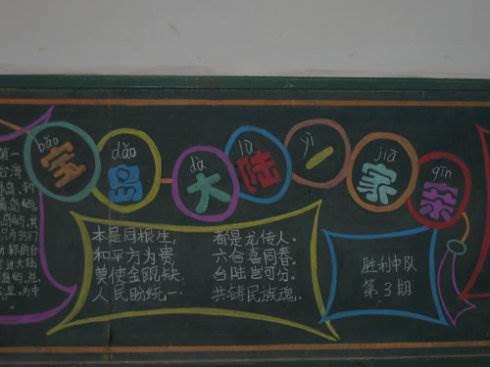 bǎo dǎo dà lù yì jiā qīn
宝岛大陆一家亲
本是同根生, 都是龙传人.
和平方为贵 六合嘉同春.
莫使金瓯缺 台陆岂可分.
人民盼统一 共铸民族魂.
胜利中队
第3期